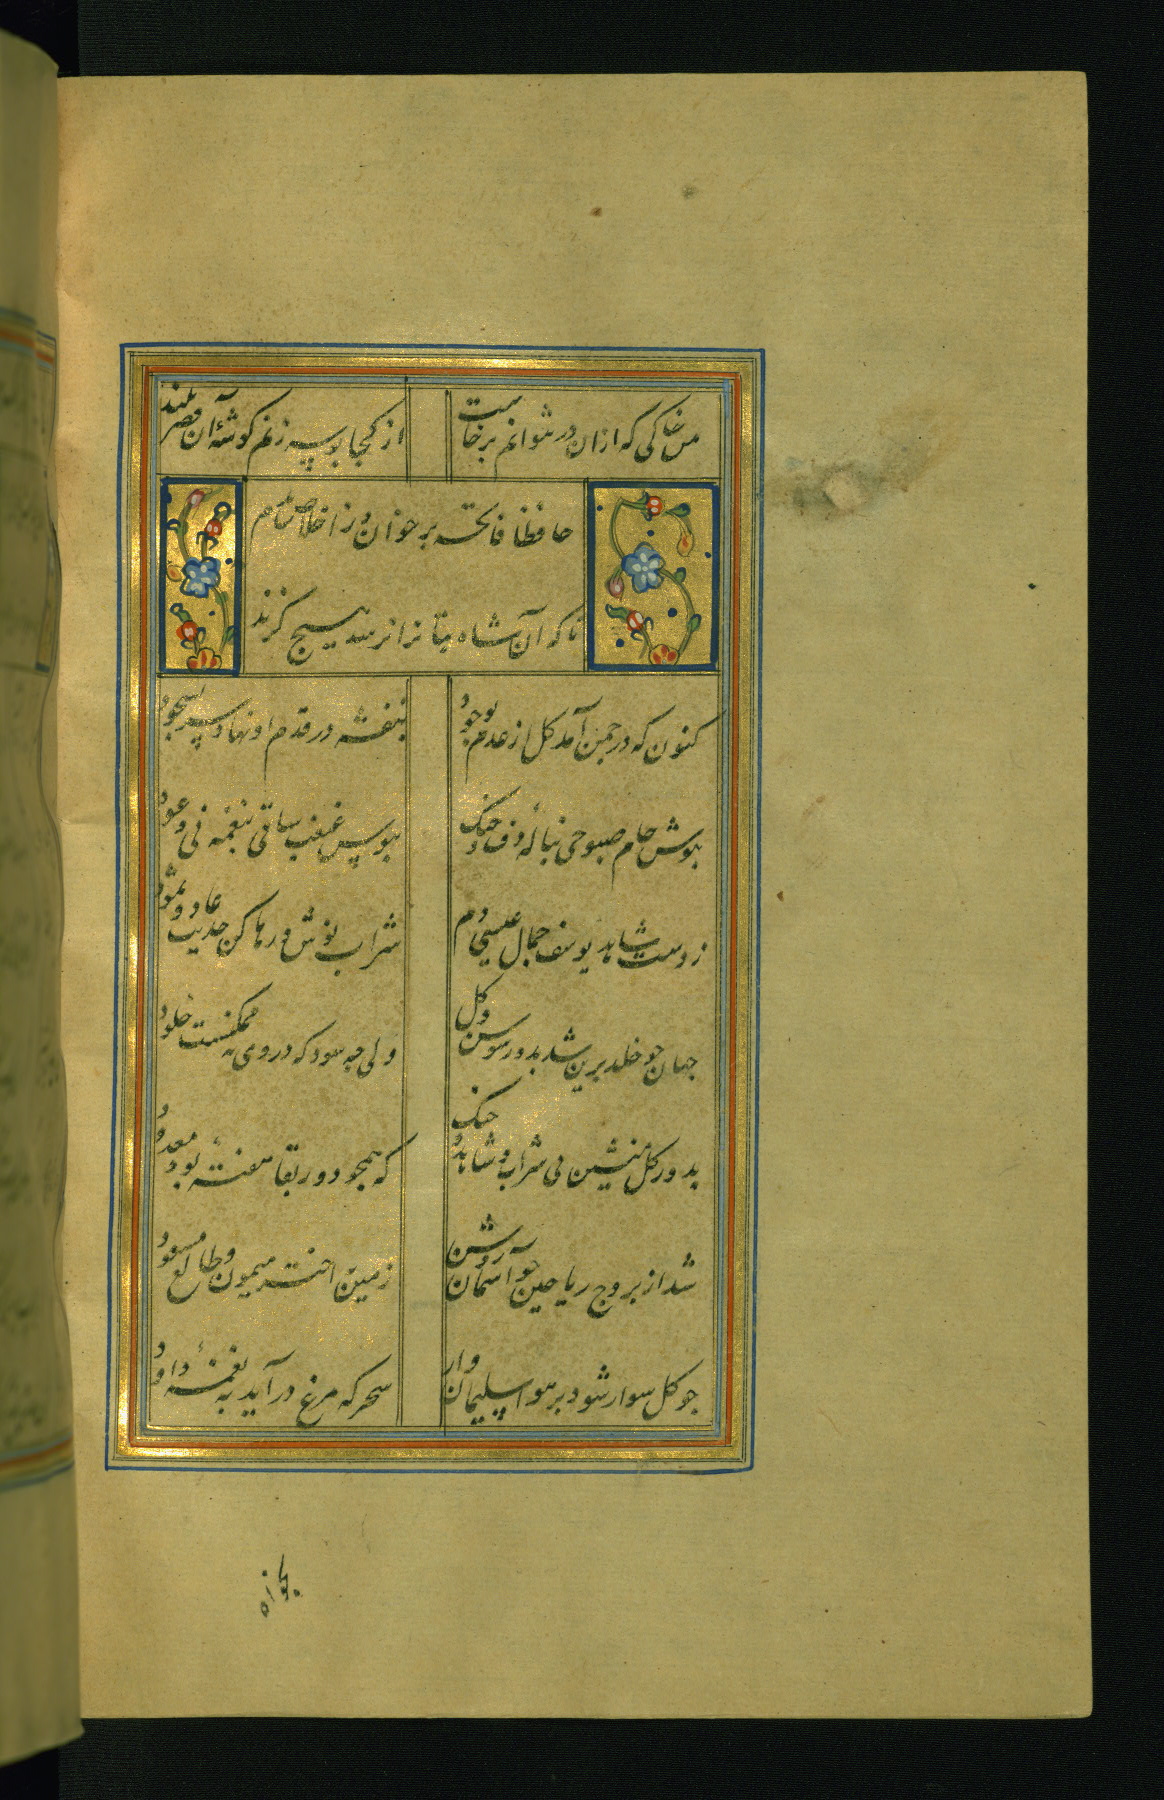 من خاکی که ازان در نتوانم برخاست از کجا بوسه زنم گوشهٔ آن قصر بلند
حافظا فاتحه بر خوان وز اخلاص تمام
تا که آن شاه بتانرا نرسد هیچ گزند
کنون که در چمن آمد گل از عدم بوجود بنفشه در قدم او نهاد سر بسجود
بنوش جام صبوحی بنالهٔ دف و چنک ببوس غبغب ساقی بنغمهٔ نی و عود
ز دست شاهد یوسف جمال عیسی دم شراب نوش و رها کن حدیث عاد و ثمود
جهان چو خلد برین شد بدور سوسن و گل ولی چه سود که در وی نه ممکنست خلود
بدور گل منشین بی شراب و شاهد و چنک که همچو دور بقا هفتهٔ بود معدود
شد از بروج ریاحین چو آسمان روشن زمین اختر میمون و طالع مسعود
چو گل سوار شود بر هوا سلیمان وار سحر که مرغ در آید به نغمهٔ داود
بخواه